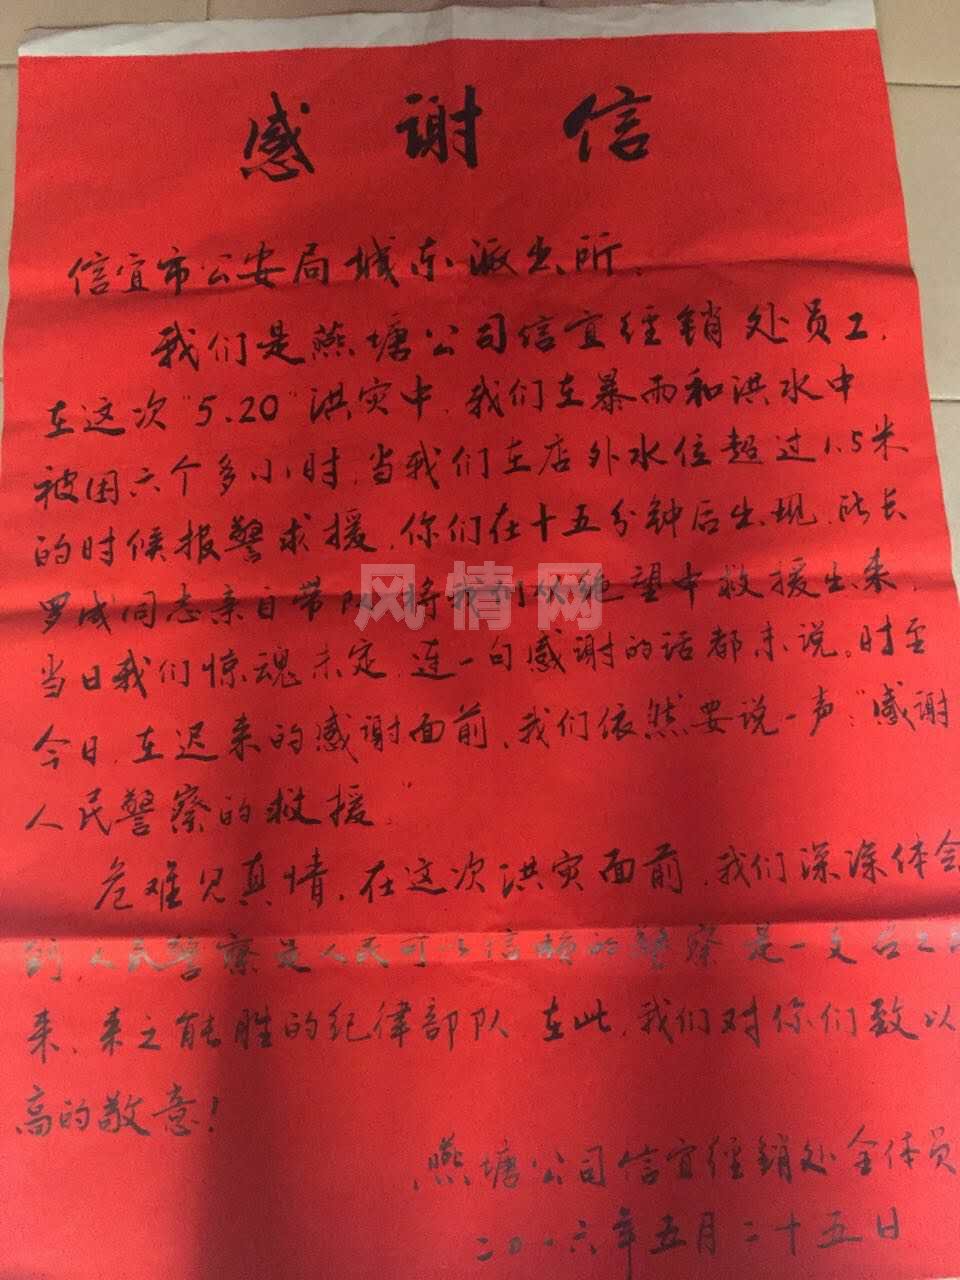 感谢信
信宜市公安局城东派出所：
我们是燕塘公司信宜经销处员工，
在这次“5.20”洪灾中，我们在暴雨和洪水中
被困六个多小时，当我们在店外水位超过1.5米
的时候报警求援，你们在十五分钟后出现，所长
罗成同志亲自带队将我们从绝望中救援出来，
当日我们惊魂未定，连一句感谢的话都未说。时至
今日，在迟来的感谢面前，我们依然要说一声：“感谢
人民警察的救援”
危难见真情，在这次洪灾面前，我们深深体会
到，人民警察是人民可以信赖的警察 是一支召之即
来，来之能胜的纪律部队 在此，我们对你们致以
高的敬意！
燕塘公司信宜经销处全体员
二〇一六年五月二十五日
风情网